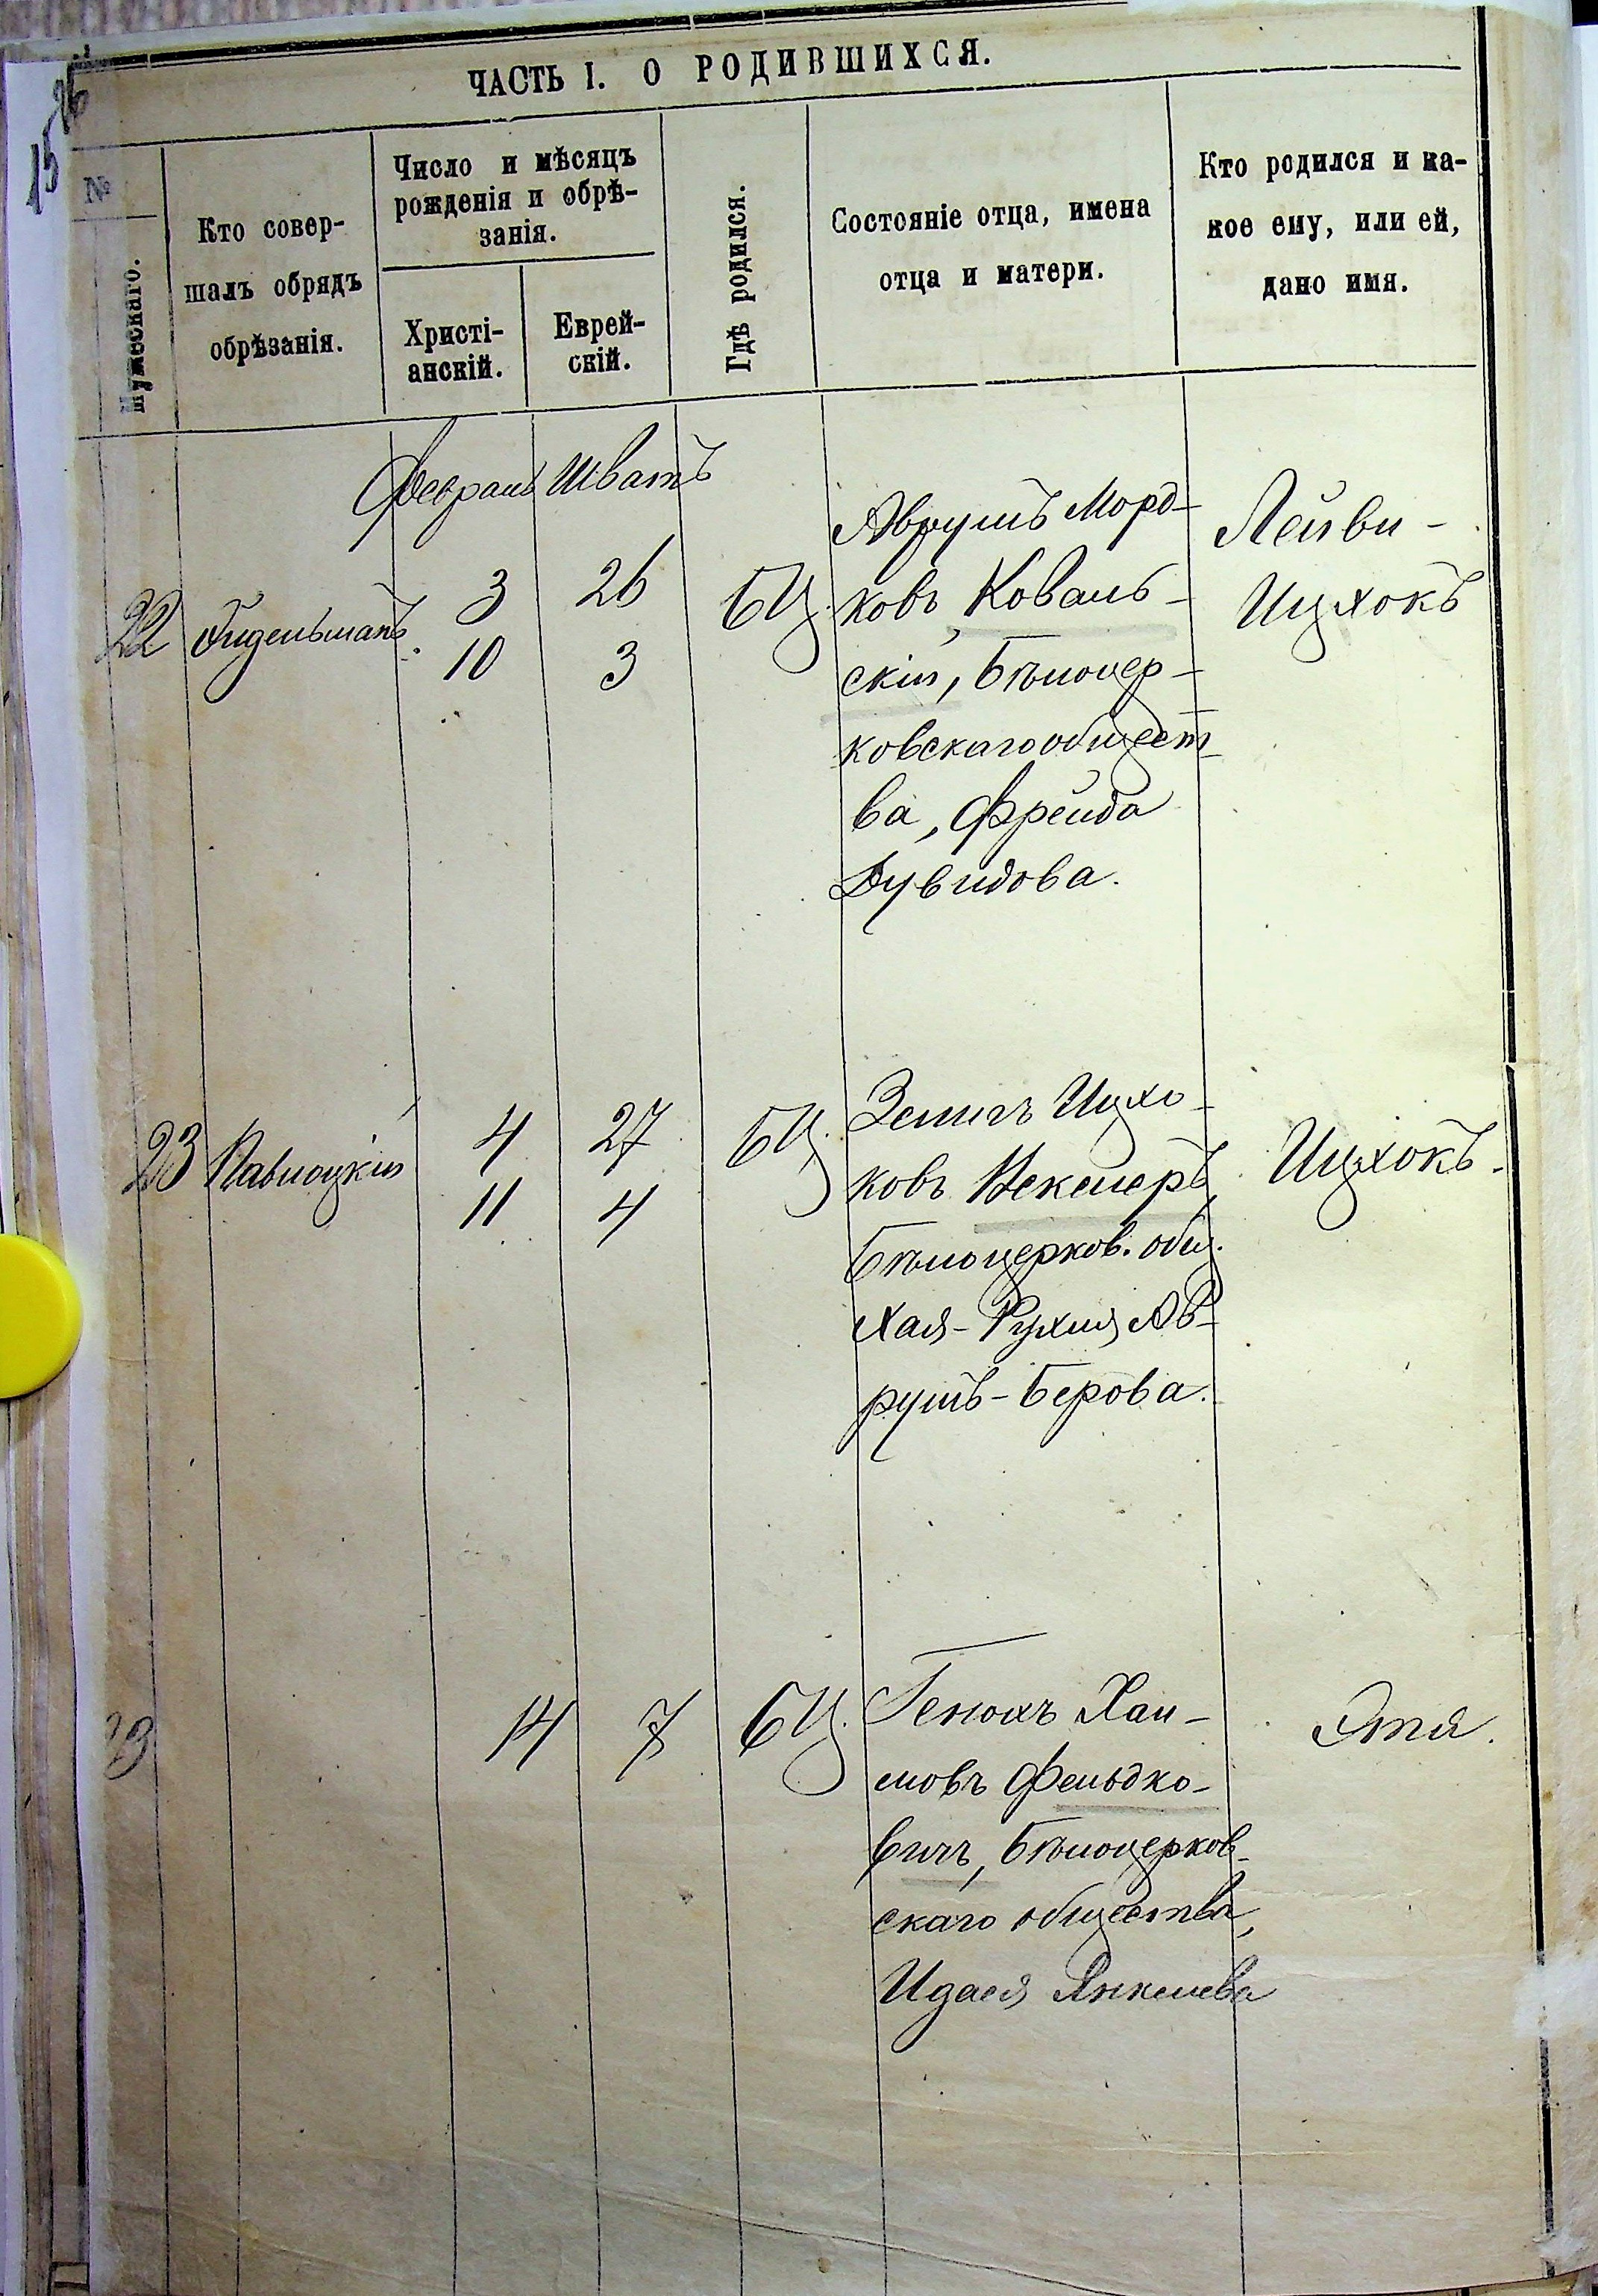 ЧАСТЬ I. О РОДИВШИХСЯ.
15
№
Мужескаго.
Кто совер-
шалъ обрядъ
обрѣзанія.
Число и мѣсяцъ
рожденія и обрѣ-
занія.
Христі-
анскій.
Еврей-
скій.
Гдѣ родился.
Состояніе отца, имена
отца и матери.
Кто родился и ка-
кое ему, или ей,
дано имя.
Февраль Шватъ
22
3 26
10 3
БЦ.
Аврумъ Морд-
ковъ Коваль-
скій, Бѣлоцер-
ковскаго общест-
ва, Фрейда
Дувидова.
Лейви-
Ицхокъ
23 Павлоцкій
4 27
11 4
БЦ.
Зелигъ Ицхо-
ковъ Векслеръ,
Бѣлоцерков. общ.
Хая-Рухля Ав-
румъ-Берова.
Ицхокъ.
14 7 БЦ.
Генохъ Хаи-
мовъ Фельдко-
вичъ, Бѣлоцерков-
скаго общества,
Идася Янкелева
Этя.